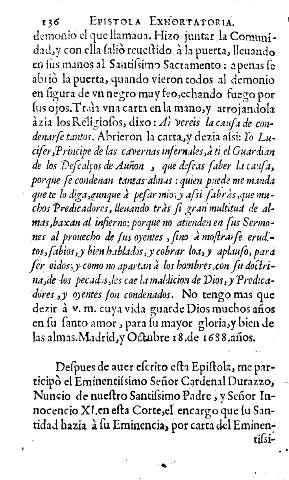 136 EPISTOLA EXHORTATORIA.
demonio el que llamaua. Hizo juntar la Comuni-
dad, y con ella saliò reuestido à la puerta, lleuando
en sus manos al Santissimo Sacramento: apenas se
abriò la puerta, quando vieron todos al demonio
en figura de vn negro muy feo, echando fuego por
sus ojos. Traìa vna carta en la mano, y arrojandola
àzia los Religiosos, dixo: Aì vereis la causa de con-
denarse tantos. Abrieron la carta, y dezia assi: Yo Lu-
cifer, Principe de las cavernas infernales, à ti el Guardian
de los Descalços de Auñon, que deseas saber la causa,
porque se condenan tantas almas: quien puede me manda
que te lo diga, aunque à pesar mio; y assi sabràs, que mu-
chos Predicadores, lleuando tràs si gran multitud de al-
mas, baxan al infierno; porque no atienden en sus Sermo-
nes al prouecho de sus oyentes, sino à mostrarse erudi-
tos, sabios, y bien hablados, y cobrar loa, y aplauso, para
ser oidos, y como no apartan à los hombres, con su doctri-
na, de los pecados, les cae la maldicion de Dios, y Predica-
dores, y oyentes son condenados. No tengo mas que
dezir à v. m. cuya vida guarde Dios muchos años
en su santo amor, para su mayor gloria, y bien de
las almas. Madrid, y Octubre 18. de 1688. años.
Despues de auer escrito esta Epistola, me par-
ticipò el Eminentissimo Señor Cardenal Durazzo,
Nuncio de nuestro Santissimo Padre, y Señor In-
nocencio XI. en esta Corte, el encargo que su San-
tidad hazia à su Eminencia, por carta del Eminen-
tissi-